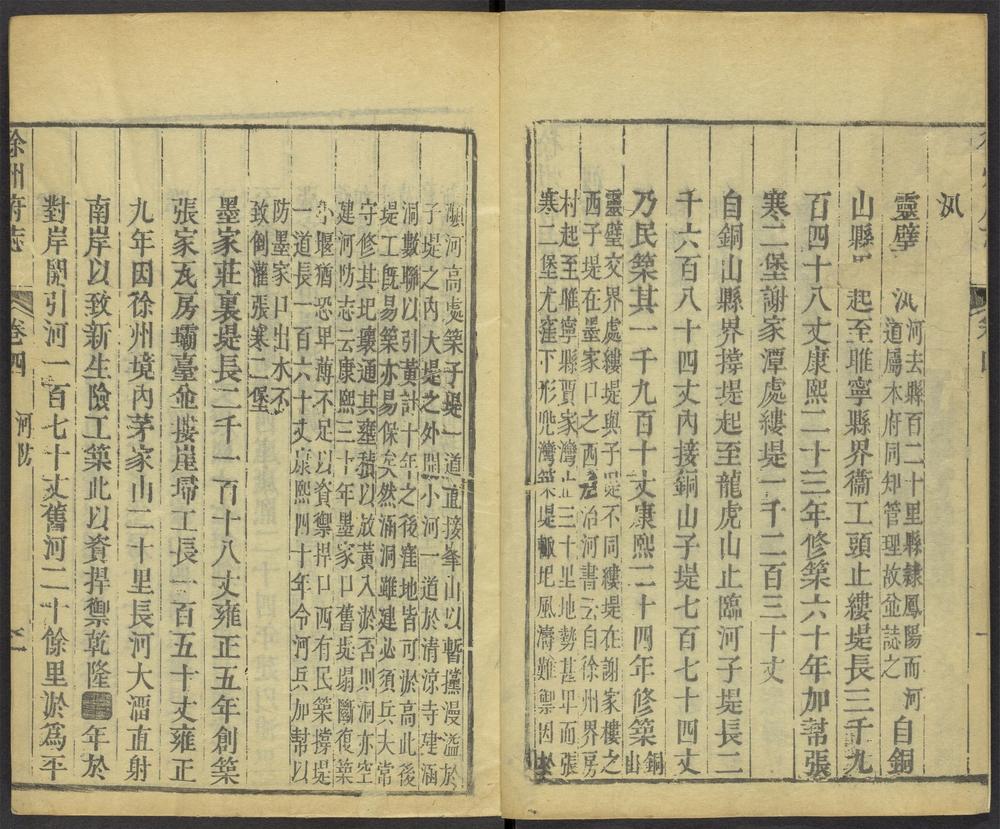 汛
靈璧汛河去縣百二十里縣隸鳳陽而河
道屬本府同知管理故並誌之自銅
山縣起至睢寧縣界衞工頭止縷堤長三千九
百四十八丈康熙二十三年修築六十年加幫張
寒二堡謝家潭處縷堤一千二百三十丈
自銅山縣界撐堤起至龍虎山止臨河子堤長二
千六百八十四丈內接銅山子堤七百七十四丈
乃民築其一千九百十丈康熙二十四年修築銅山
靈璧交界處縷堤與子堤不同縷堤在謝家樓之
西子堤在墨家口之西治河書云自徐州界房
村起至睢寧縣賈家灣止三十里地勢甚卑而張
寒二堡尤窪下形兜灣築堤輙圯風濤難禦因於
瀕河高處築子堤一道直接峯山以暫攩漫溢於
子堤之內大堤之外開小河一道於清涼寺建涵
洞數聯以引黃計十年之後窪地皆可淤高此後
堤工旣易築亦易保矣然涵洞雖建必須兵夫常
守修其圯壞通其壅積以放黃入淤否則洞亦空
建河防志云康熙三十年墨家口舊堤塌斷復築
小堰猶恐卑薄不足以資禦捍口西有民築撐堤
一道長一百六十丈康熙四十年令河兵加幫以
防墨家口出水不
致倒灌張寒二堡
墨家莊裏堤長二千一百十八丈雍正五年創築
張家瓦房壩臺並接崖埽工長一百五十丈雍正
九年因徐州境內茅家山二十里長河大溜直射
南岸以致新生險工築此以資捍禦乾隆年於
對岸開引河一百七十丈舊河二十餘里淤爲平
徐州府志
卷四
河防